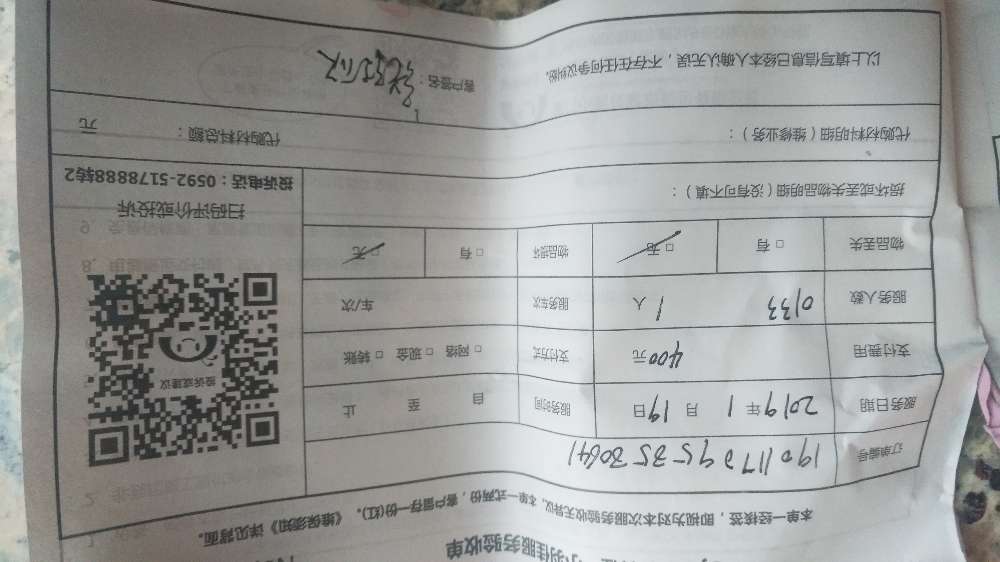 小羽佳服务验收单
本单一经接签，即视为对本次服务验收无异议，本单一式两份，客户留存一份(红)。《维保须知》详见背面。
订单编号 190117295353064
服务日期 2019年1月19日 服务时间 自 至 止
支付费用 400元 支付方式 □网络 □现金 □转账
服务人数 0133 1人 服务车次 车/次
物品丢失 □有 □无 物品损坏 □有 □无
损坏或丢失物品明细（没有可不填）：
投诉或建议
扫码评价或投诉
投诉电话：0592-5178888转2
代购材料明细（维修业务）：
代购材料总额： 元
以上填写信息已经本人确认无误，不存在任何争议纠纷。
客户签名：